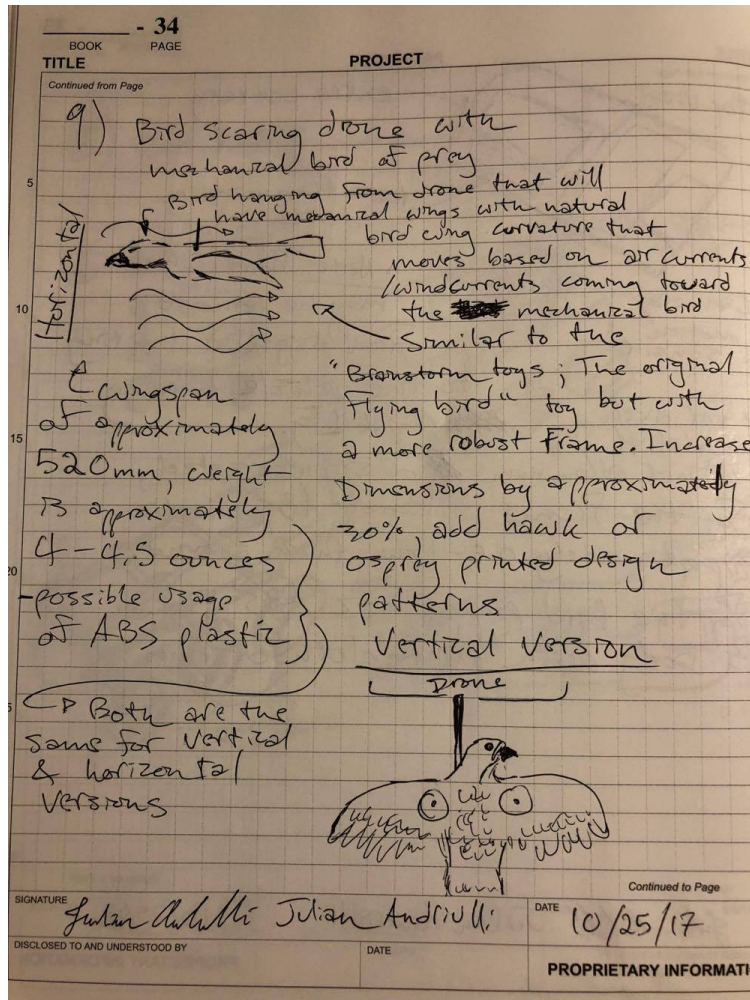 - 34
BOOK PAGE
TITLE PROJECT
Continued from Page
9) Bird scaring drone with
mechanical bird of prey
Bird hanging from drone that will
have mechanical wings with natural
bird wing curvature that
moves based on air currents
/windcurrents coming toward
the mechanical bird
Similar to the
"Brainstorm toys; The original
Flying bird" toy but with
a more robust frame. Increase
Dimensions by approximately
30%, add hawk or
osprey printed design
patterns
Horizontal
wingspan
of approximately
520mm, weight
is approximately
4-4.5 ounces
-possible usage
of ABS plastic
Both are the
same for vertical
& horizontal
versions
Vertical Version
Drone
5
10
15
20
5
Continued to Page
SIGNATURE Julian Andriulli DATE 10/25/17
DISCLOSED TO AND UNDERSTOOD BY DATE
PROPRIETARY INFORMATI